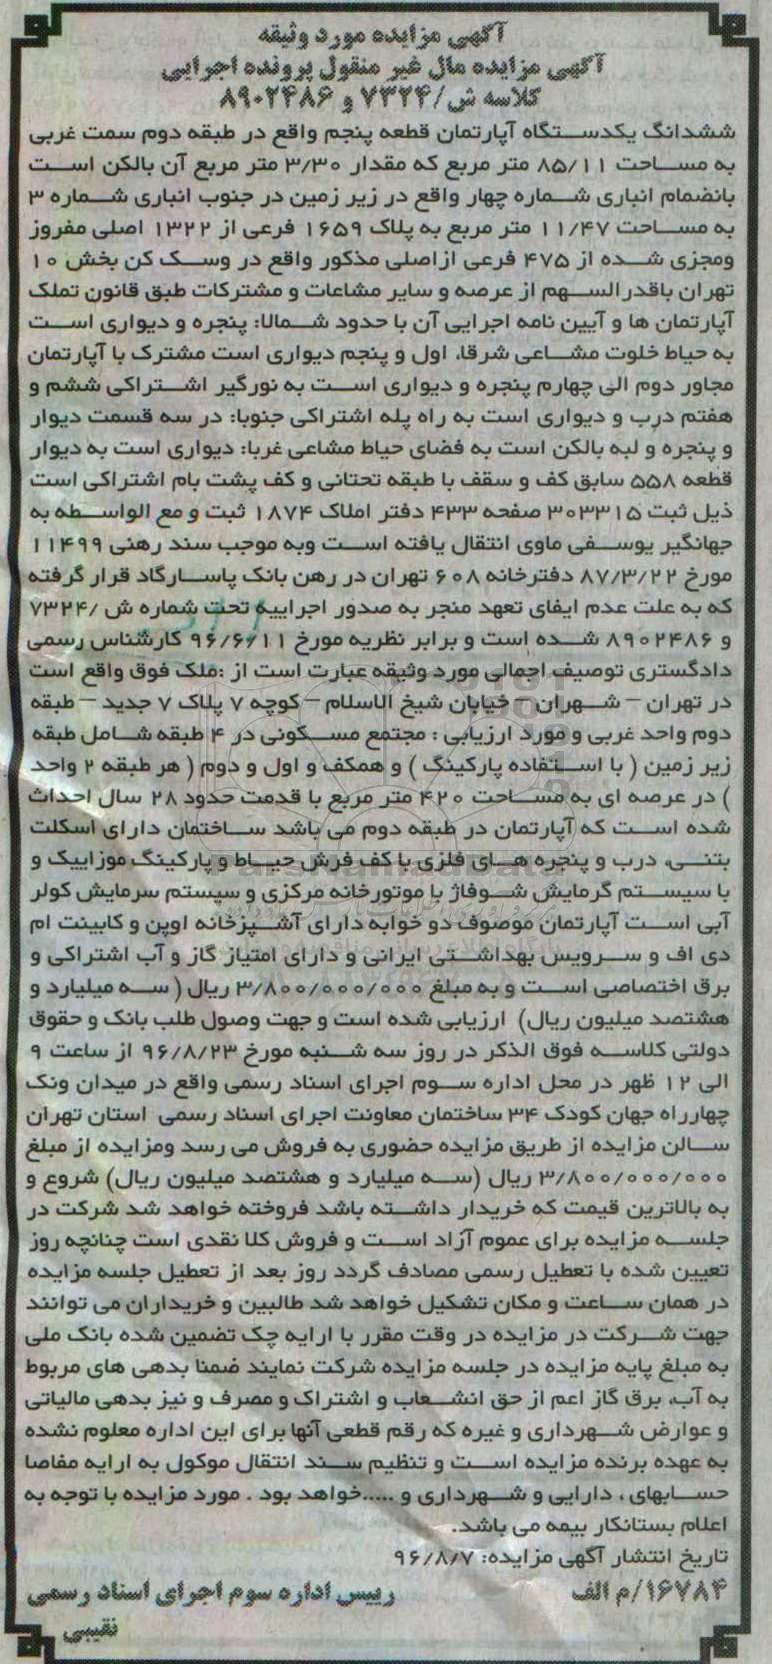 آگهی مزایده مورد وثیقه
آگهی مزایده مال غیر منقول پرونده اجرایی
کلاسه ش/۷۳۲۴ و ۸۹۰۲۴۸۶
ششدانگ یکدستگاه آپارتمان قطعه پنجم واقع در طبقه دوم سمت غربی
به مساحت ۸۵/۱۱ متر مربع که مقدار ۳/۳۰ متر مربع آن بالکن است
بانضمام انباری شماره چهار واقع در زیر زمین در جنوب انباری شماره ۳
به مساحت ۱۱/۴۷ متر مربع به پلاک ۱۶۵۹ فرعی از ۱۳۲۲ اصلی مفروز
ومجزی شده از ۴۷۵ فرعی ازاصلی مذکور واقع در وسک کن بخش ۱۰
تهران باقدرالسهم از عرصه و سایر مشاعات و مشترکات طبق قانون تملک
آپارتمان ها و آیین نامه اجرایی آن با حدود شمالا: پنجره و دیواری است
به حیاط خلوت مشاعی شرقا، اول و پنجم دیواری است مشترک با آپارتمان
مجاور دوم الی چهارم پنجره و دیواری است به نورگیر اشتراکی ششم و
هفتم درب و دیواری است به راه پله اشتراکی جنوبا: در سه قسمت دیوار
و پنجره و لبه بالکن است به فضای حیاط مشاعی غربا: دیواری است به دیوار
قطعه ۵۵۸ سابق کف و سقف با طبقه تحتانی و کف پشت بام اشتراکی است
ذیل ثبت ۳۰۳۳۱۵ صفحه ۴۳۳ دفتر املاک ۱۸۷۴ ثبت و مع الواسطه به
جهانگیر یوسفی ماوی انتقال یافته است وبه موجب سند رهنی ۱۱۴۹۹
مورخ ۸۷/۳/۲۲ دفترخانه ۶۰۸ تهران در رهن بانک پاسارگاد قرار گرفته
که به علت عدم ایفای تعهد منجر به صدور اجراییه تحت شماره ش /۷۳۲۴
و ۸۹۰۲۴۸۶ شده است و برابر نظریه مورخ ۹۶/۶/۱۱ کارشناس رسمی
دادگستری توصیف اجمالی مورد وثیقه عبارت است از :ملک فوق واقع است
در تهران – شهران – خیابان شیخ الاسلام – کوچه ۷ پلاک ۷ جدید – طبقه
دوم واحد غربی و مورد ارزیابی : مجتمع مسکونی در ۴ طبقه شامل طبقه
زیر زمین ( با استفاده پارکینگ ) و همکف و اول و دوم ( هر طبقه ۲ واحد
) در عرصه ای به مساحت ۴۲۰ متر مربع با قدمت حدود ۲۸ سال احداث
شده است که آپارتمان در طبقه دوم می باشد ساختمان دارای اسکلت
بتنی، درب و پنجره های فلزی با کف فرش حیاط و پارکینگ موزاییک و
با سیستم گرمایش شوفاژ با موتورخانه مرکزی و سیستم سرمایش کولر
آبی است آپارتمان موصوف دو خوابه دارای آشپزخانه اوپن و کابینت ام
دی اف و سرویس بهداشتی ایرانی و دارای امتیاز گاز و آب اشتراکی و
برق اختصاصی است و به مبلغ ۳/۸۰۰/۰۰۰/۰۰۰ ریال ( سه میلیارد و
هشتصد میلیون ریال) ارزیابی شده است و جهت وصول طلب بانک و حقوق
دولتی کلاسه فوق الذکر در روز سه شنبه مورخ ۹۶/۸/۲۳ از ساعت ۹
الی ۱۲ ظهر در محل اداره سوم اجرای اسناد رسمی واقع در میدان ونک
چهارراه جهان کودک ۳۴ ساختمان معاونت اجرای اسناد رسمی استان تهران
سالن مزایده از طریق مزایده حضوری به فروش می رسد ومزایده از مبلغ
۳/۸۰۰/۰۰۰/۰۰۰ ریال (سه میلیارد و هشتصد میلیون ریال) شروع و
به بالاترین قیمت که خریدار داشته باشد فروخته خواهد شد شرکت در
جلسه مزایده برای عموم آزاد است و فروش کلا نقدی است چنانچه روز
تعیین شده با تعطیل رسمی مصادف گردد روز بعد از تعطیل جلسه مزایده
در همان ساعت و مکان تشکیل خواهد شد طالبین و خریداران می توانند
جهت شرکت در مزایده در وقت مقرر با ارایه چک تضمین شده بانک ملی
به مبلغ پایه مزایده در جلسه مزایده شرکت نمایند ضمنا بدهی های مربوط
به آب، برق گاز اعم از حق انشعاب و اشتراک و مصرف و نیز بدهی مالیاتی
و عوارض شهرداری و غیره که رقم قطعی آنها برای این اداره معلوم نشده
به عهده برنده مزایده است و تنظیم سند انتقال موکول به ارایه مفاصا
حسابهای ، دارایی و شهرداری و .....خواهد بود . مورد مزایده با توجه به
اعلام بستانکار بیمه می باشد.
تاریخ انتشار آگهی مزایده: ۹۶/۸/۷
۱۶۷۸۴/م الف رییس اداره سوم اجرای اسناد رسمی
نقیبی